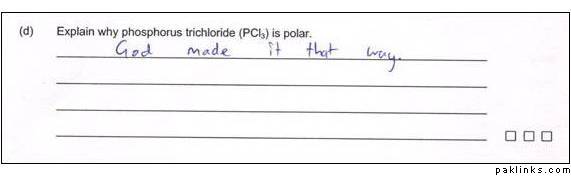 (d) Explain why phosphorus trichloride (PCl₃) is polar.
God made it that way.
paklinks.com